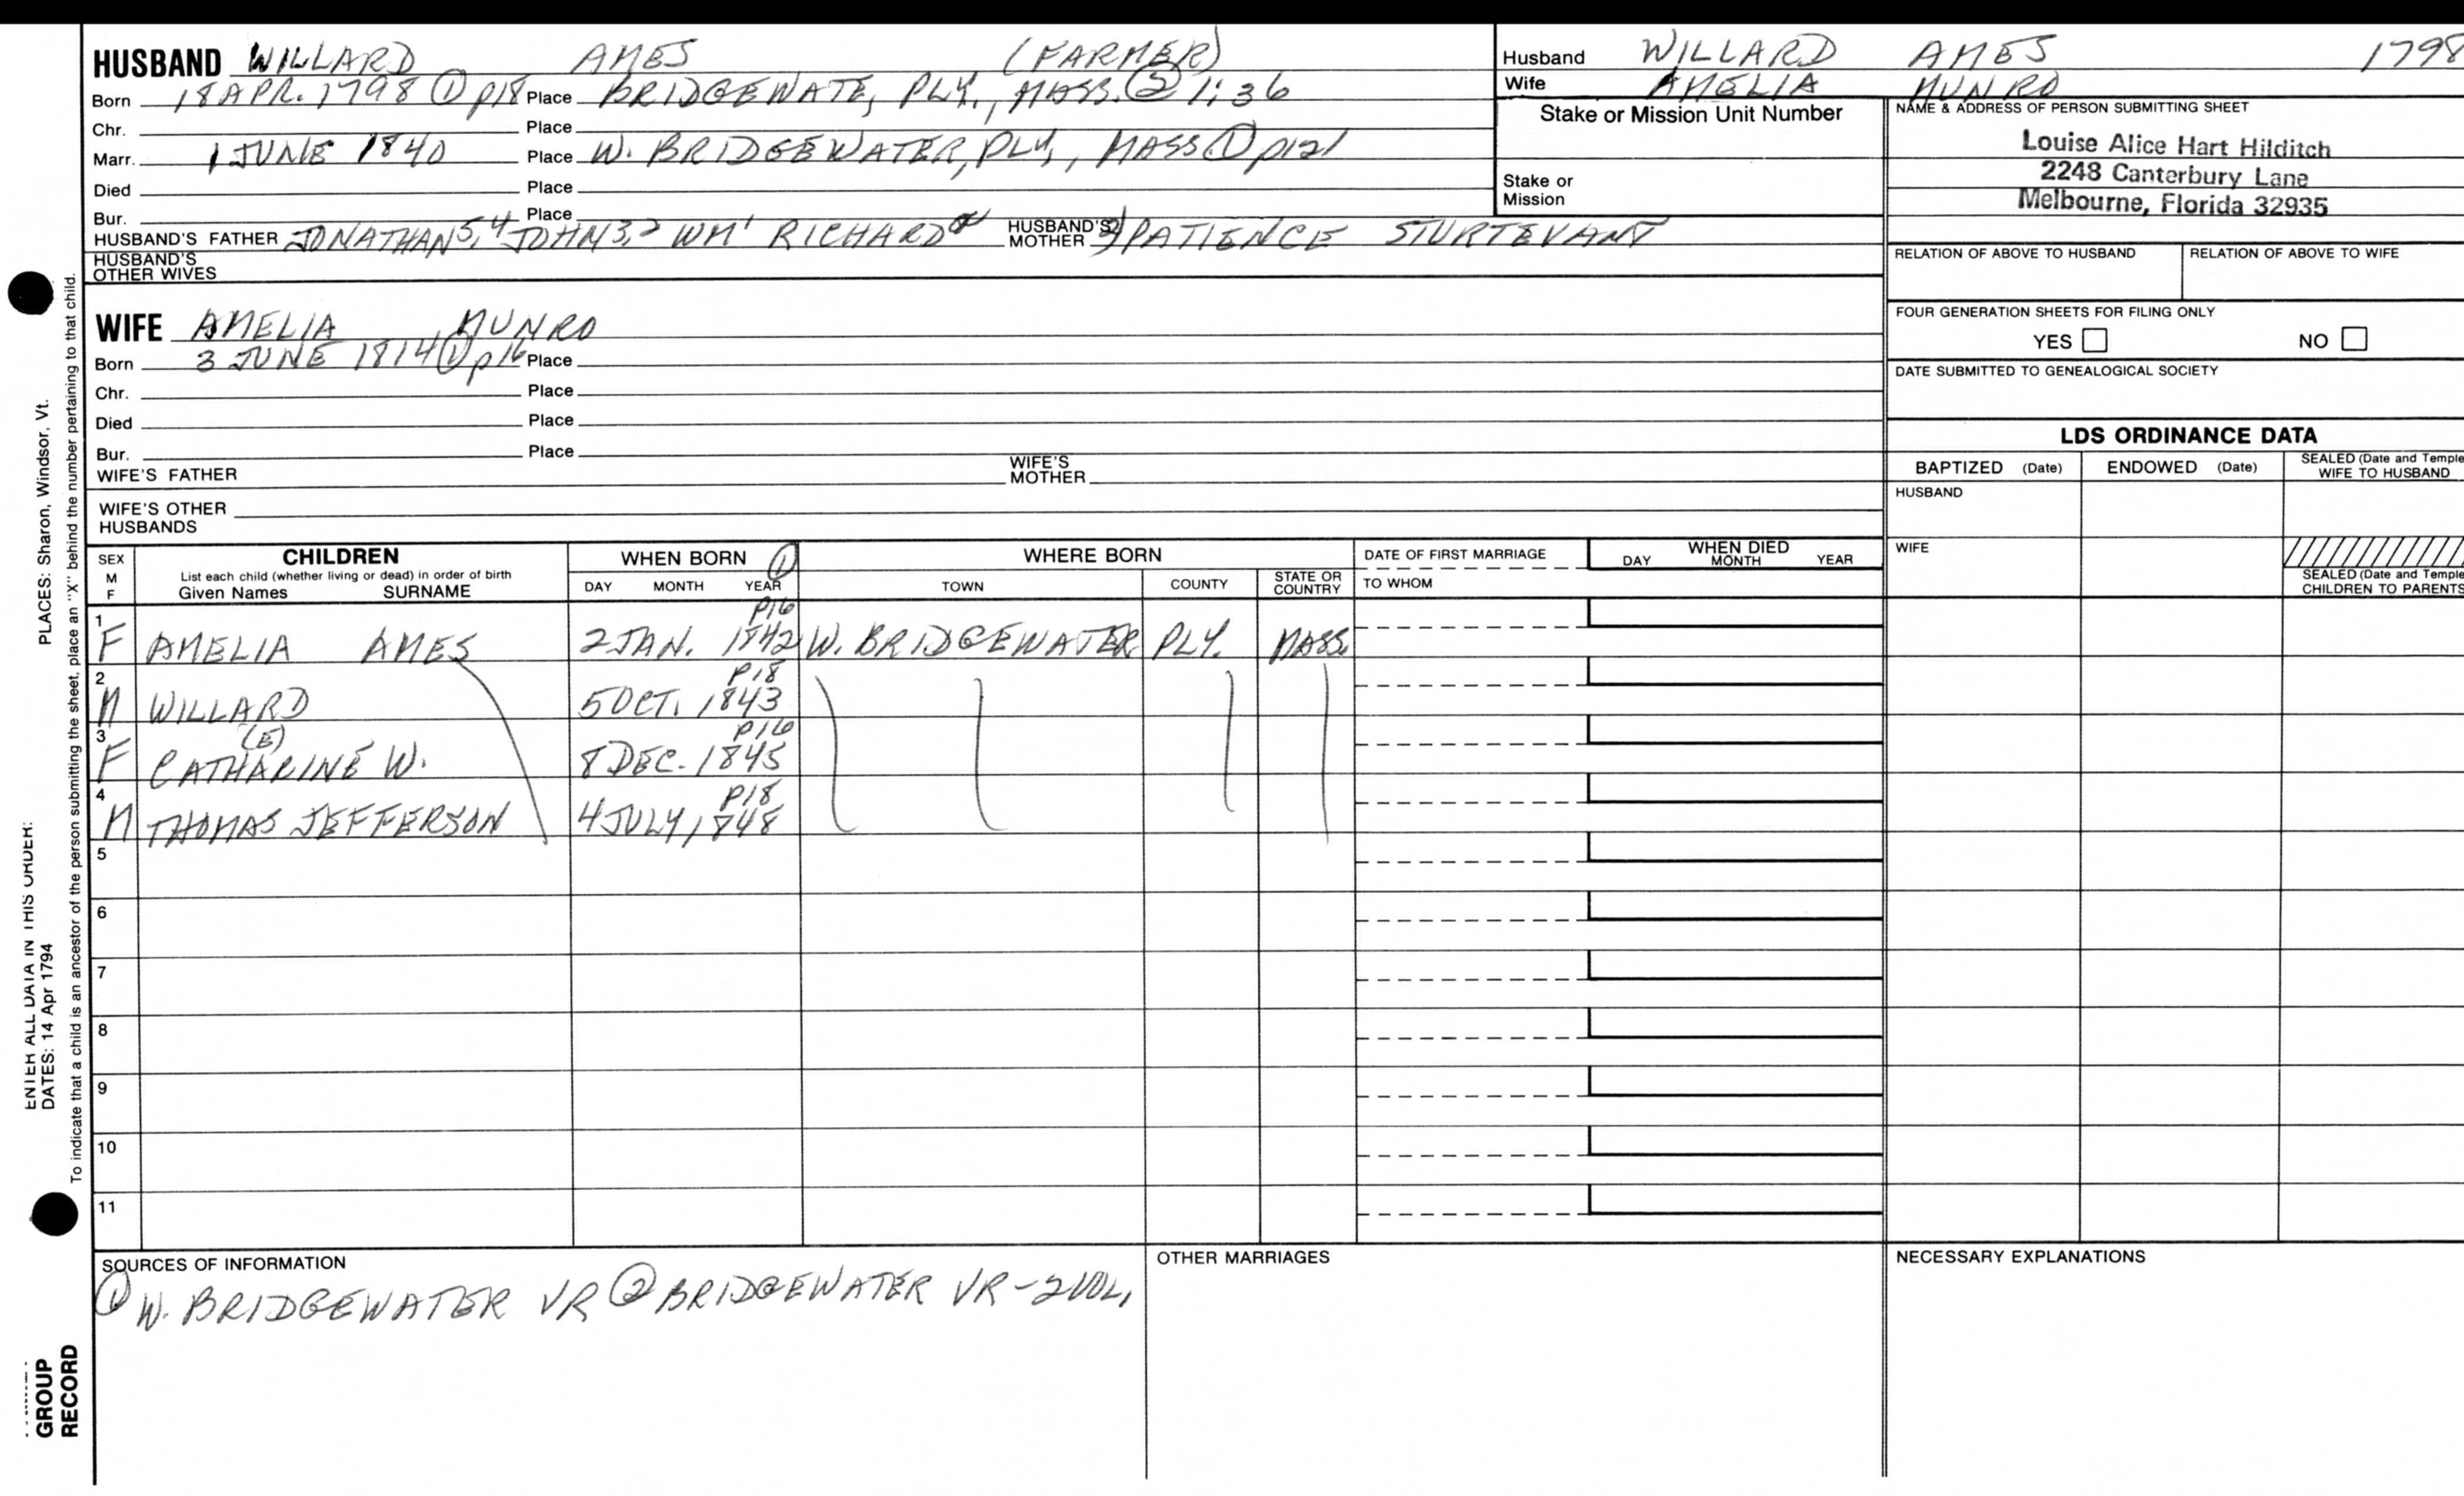 HUSBAND WILLARD AMES (FARMER)
Born 18 APR. 1798 ① p18 Place BRIDGEWATE, PLY., MASS. ② 1:36
Chr. Place
Marr. 1 JUNE 1840 Place W. BRIDGEWATER, PLY., MASS ① p121
Died Place
Bur. Place
HUSBAND'S FATHER JONATHAN 5,4 JOHN 3,2 WM' RICHARD HUSBAND'S MOTHER PATIENCE STURTEVANT
HUSBAND'S OTHER WIVES
Husband WILLARD AMES 1798
Wife AMELIA MUNRO
Stake or Mission Unit Number
Stake or Mission
NAME & ADDRESS OF PERSON SUBMITTING SHEET
Louise Alice Hart Hilditch
2248 Canterbury Lane
Melbourne, Florida 32935
RELATION OF ABOVE TO HUSBAND RELATION OF ABOVE TO WIFE
FOUR GENERATION SHEETS FOR FILING ONLY
YES NO
DATE SUBMITTED TO GENEALOGICAL SOCIETY
WIFE AMELIA MUNRO
Born 3 JUNE 1814 ① p16 Place
Chr. Place
Died Place
Bur. Place
WIFE'S FATHER WIFE'S MOTHER
WIFE'S OTHER HUSBANDS
LDS ORDINANCE DATA
BAPTIZED (Date) ENDOWED (Date) SEALED (Date and Temple
WIFE TO HUSBAND
HUSBAND
WIFE
SEALED (Date and Temple
CHILDREN TO PARENTS
SEX M F CHILDREN WHEN BORN ① WHERE BORN DATE OF FIRST MARRIAGE WHEN DIED
List each child (whether living or dead) in order of birth
Given Names SURNAME DAY MONTH YEAR TOWN COUNTY STATE OR COUNTRY TO WHOM DAY MONTH YEAR
P16
1 F AMELIA AMES 2 JAN. 1842 W. BRIDGEWATER PLY. MASS.
P18
2 M WILLARD 5 OCT. 1843
(E) P16
3 F CATHARINE W. 8 DEC. 1845
P18
4 M THOMAS JEFFERSON 4 JULY, 1848
5
6
7
8
9
10
11
SOURCES OF INFORMATION
① W. BRIDGEWATER VR ② BRIDGEWATER VR - 2 VOL,
OTHER MARRIAGES
NECESSARY EXPLANATIONS
ENTER ALL DATA IN THIS ORDER:
DATES: 14 Apr 1794 PLACES: Sharon, Windsor, Vt.
To indicate that a child is an ancestor of the person submitting the sheet, place an "X" behind the number pertaining to that child.
GROUP
RECORD